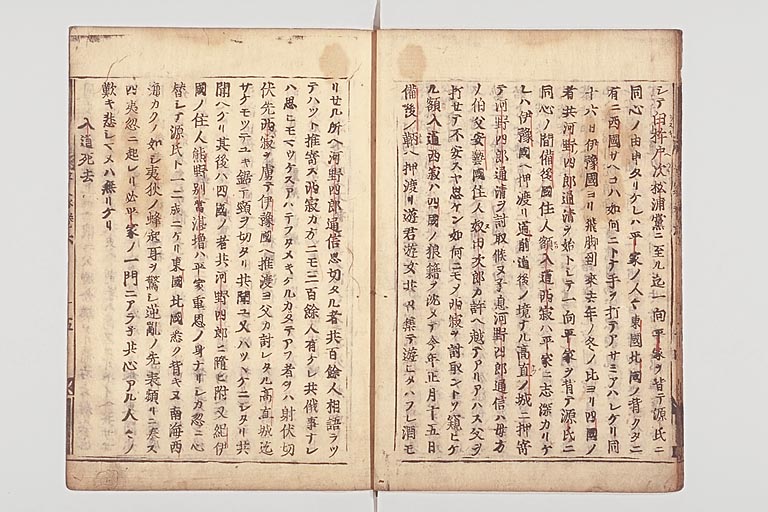 シテ臼杵戸次松浦黨ニ至ル迄一向平家ヲ背テ源氏ニ
同心ノ由申タリケレハ平家ノ人々東國北國ノ背クタニ
有ニ西國サヘコハ如何ニトテ手ヲ打テアサミアハレケリ同
十六日伊豫國ヨリ飛脚到來去年ノ冬ノ比ヨリ四國ノ
者共河野四郎通清ヲ始トシテ一向平家ヲ背テ源氏ニ
同心ノ間備後國住人額入道西寂ハ平家ニ志深カリケ
レハ伊豫國ヘ押渡リ道前道後ノ境ナル高直ノ城ニ押寄
テ河野四郎通清ヲ討取候ヌ子息河野四郎通信ハ母方
ノ伯父安藝國住人奴田次郎カ許ヘ越テアリアハス父ヲ
打セテ不安ス思ケン如何ニモメ西寂ヲ討取ントソ窺ヒケ
ル額入道西寂ハ四國ノ狼籍ヲ沈メテ今年正月十五日
備後ノ鞆ヘ押渡リ遊君遊女共召集テ遊ヒタハフレ酒モ
リせル所ヘ河野四郎通信思切タル者共百餘人相語ラツ
テハツト推寄ス西寂カ方ニモ三百餘人有ケレ共俄事ナレ
ハ思ヒモマウケスアハテフタメキケルカタテアフ者ヲハ射伏切
伏先西寂ヲ虜テ伊豫國ヘ推渡ヨ父カ討レタル高直城迄
サケモツテユキ鋸テ頸ヲ切タリ共聞ユ又ハツツケニシタリ共
聞ヘケリ其後ハ四國ノ者共河野四郎ニ隨ヒ附又紀伊
國ノ住人熊野別當湛増ハ平家重恩ノ身ナリシカ忽ニ心
替シテ源氏ト一ニ成ニケリ東國北國悉ク背キヌ南海西
海カクノ如シ夷狄ノ蜂起耳ヲ驚シ逆亂ノ先表頻リニ奏ス
四夷忽ニ起レリ必平家ノ一門ニアラ子共心アル人々ノ
歎キ悲シマヌハ無リケリ
入道死去